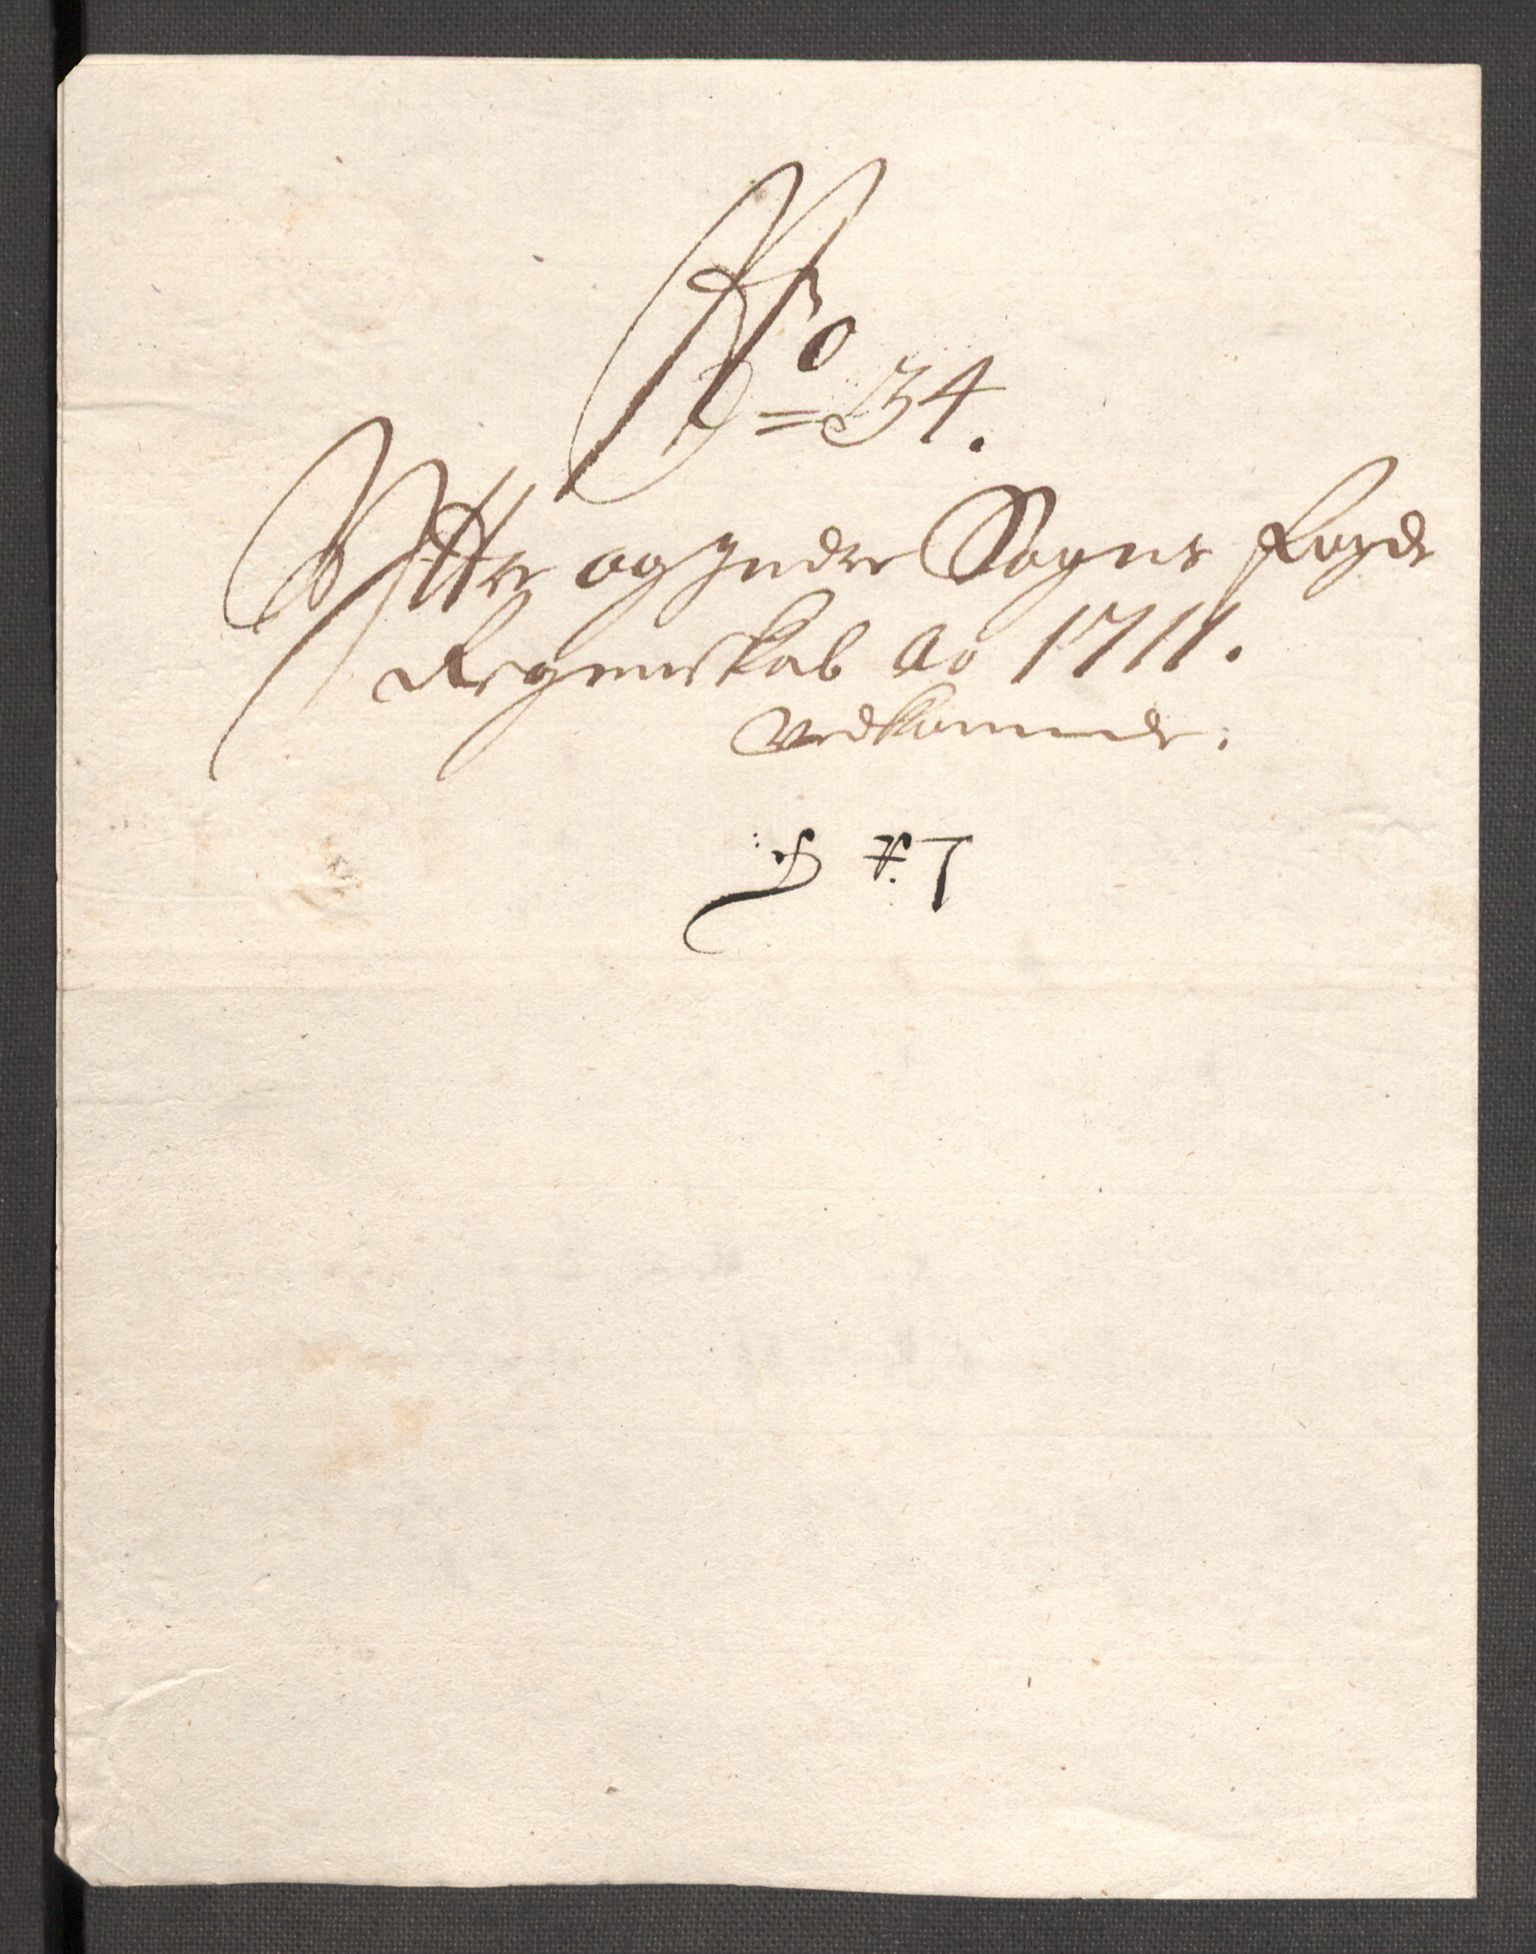 No = 34.
Ÿttre og Jndre Sogns fogde
Regenskab Ao 1711.
Vedkommende.